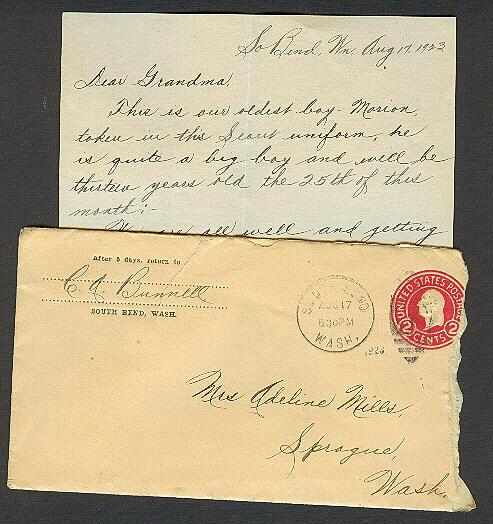 So Bend, Wn. Aug 17, 1923
Dear Grandma,
This is our oldest boy - Marion,
taken in the Scout uniform, he
is quite a big boy and will be
thirteen years old the 25th of this
month:-
We are all well and getting
After 5 days, return to
Bunnell
SOUTH BEND, WASH.
AUG 17
6 30 PM
WASH.
192
UNITED STATES POSTAGE
2 CENTS 2
Mrs Adeline Mills,
Sprague,
Wash.